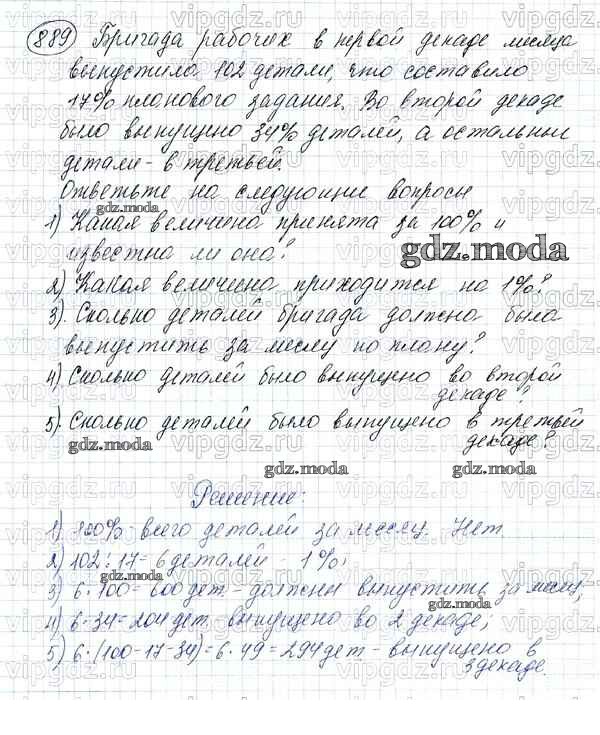 889 Бригада рабочих в первой декаде месяца
выпустила 102 детали, что составило
17% планового задания. Во второй декаде
было выпущено 34% деталей, а остальные
детали - в третьей.
Ответьте на следующие вопросы
gdz.moda
1) Какая величина принята за 100% и
известна ли она?
gdz.moda
2) Какая величина приходится на 1%?
3). Сколько деталей бригада должна была
выпустить за месяц по плану?
4) Сколько деталей было выпущено во второй
декаде?
5). Сколько деталей было выпущено в третьей
декаде?
gdz.moda
gdz.moda gdz.moda
Решение:
1) 100% - всего деталей за месяц. Нет.
2) 102:17=6 деталей 1%;
3) 6·100=600 дет - должны выпустить за месяц;
gdz.moda
4) 6·34=204 дет. выпущено во 2 декаде;
5) 6·(100-17-34)=6·49=294 дет - выпущено в
3 декаде.